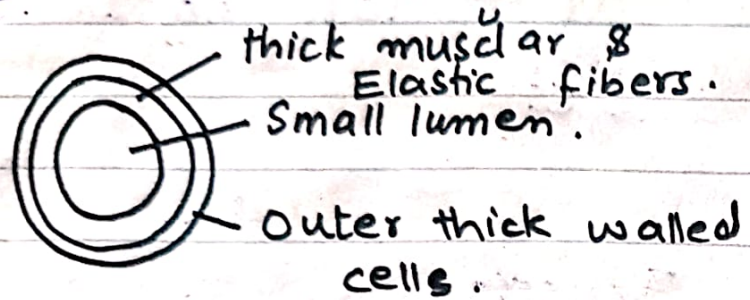 thick muscular &
Elastic fibers.
Small lumen.
Outer thick walled
cells.